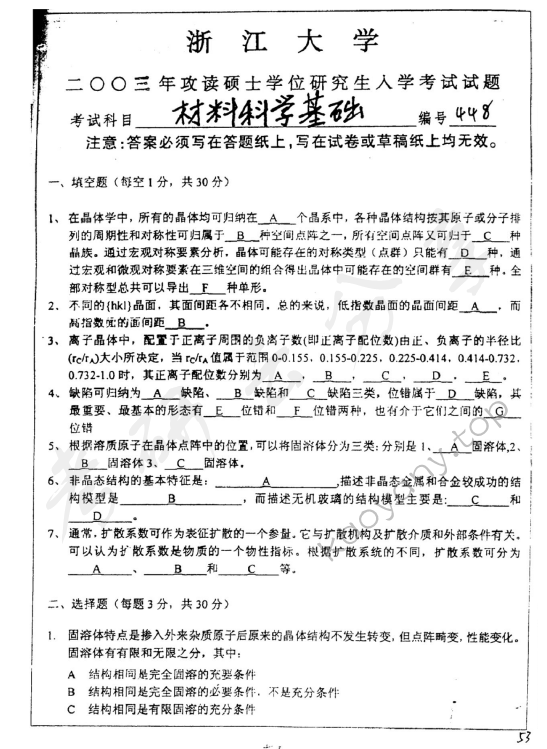 浙 江 大 学
二〇〇三年攻读硕士学位研究生入学考试试题
考试科目 材料科学基础 编号 448
注意:答案必须写在答题纸上,写在试卷或草稿纸上均无效。
一、填空题(每空1分,共30分)
1、在晶体学中,所有的晶体均可归纳在 A 个晶系中,各种晶体结构按其原子或分子排
列的周期性和对称性可归属于 B 种空间点阵之一,所有空间点阵又可归于 C 种
晶族。通过宏观对称要素分析,晶体可能存在的对称类型(点群)只能有 D 种,通
过宏观和微观对称要素在三维空间的组合得出晶体中可能存在的空间群有 E 种,全
部对称型总共可以导出 F 种单形。
2、不同的{hkl}晶面,其面间距各不相同,总的来说,低指数晶面的晶面间距 A ,而
高指数面的面间距 B 。
3、离子晶体中,配置于正离子周围的负离子数(即正离子配位数)由正、负离子的半径比
(rC/rA)大小所决定,当 rC/rA 值属于范围 0-0.155,0.155-0.225,0.225-0.414,0.414-0.732,
0.732-1.0 时,其正离子配位数分别为 A 、 B 、 C 、 D 、 E 。
4、缺陷可归纳为 A 缺陷、 B 缺陷和 C 缺陷三类,位错属于 D 缺陷,其
最重要、最基本的形态有 E 位错和 F 位错两种,也有介于它们之间的 G
位错
5、根据溶质原子在晶体点阵中的位置,可以将固溶体分为三类:分别是 1、 A 固溶体,2、
B 固溶体 3、 C 固溶体。
6、非晶态结构的基本特征是: A ,描述非晶态金属和合金较成功的结
构模型是 B ,而描述无机玻璃的结构模型主要是: C 和
D 。
7、通常,扩散系数可作为表征扩散的一个参量。它与扩散机构及扩散介质和外部条件有关。
可以认为扩散系数是物质的一个物性指标。根据扩散系统的不同,扩散系数可分为
A 、 B 和 C 等。
二、选择题(每题3分,共30分)
1. 固溶体特点是掺入外来杂质原子后原来的晶体结构不发生转变,但点阵畸变,性能变化。
固溶体有有限和无限之分,其中:
A 结构相同是完全固溶的充要条件
B 结构相同是完全固溶的必要条件,不是充分条件
C 结构相同是有限固溶的充分条件
53
kaoyany.top